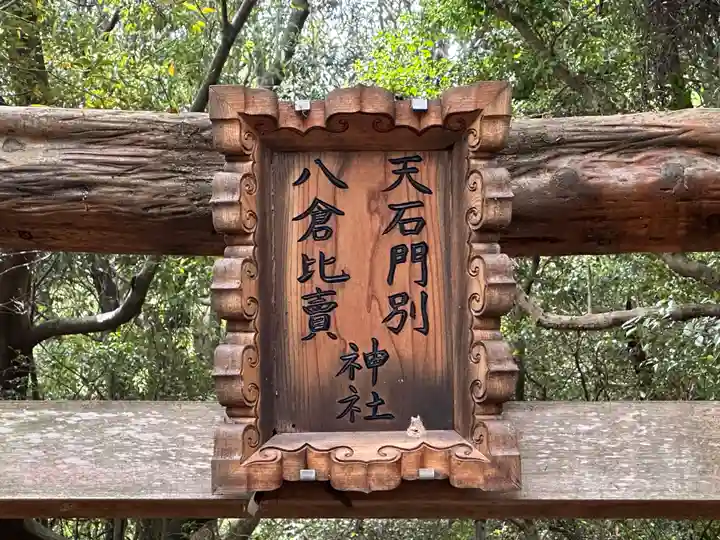 天石門別
八倉比賣
神社